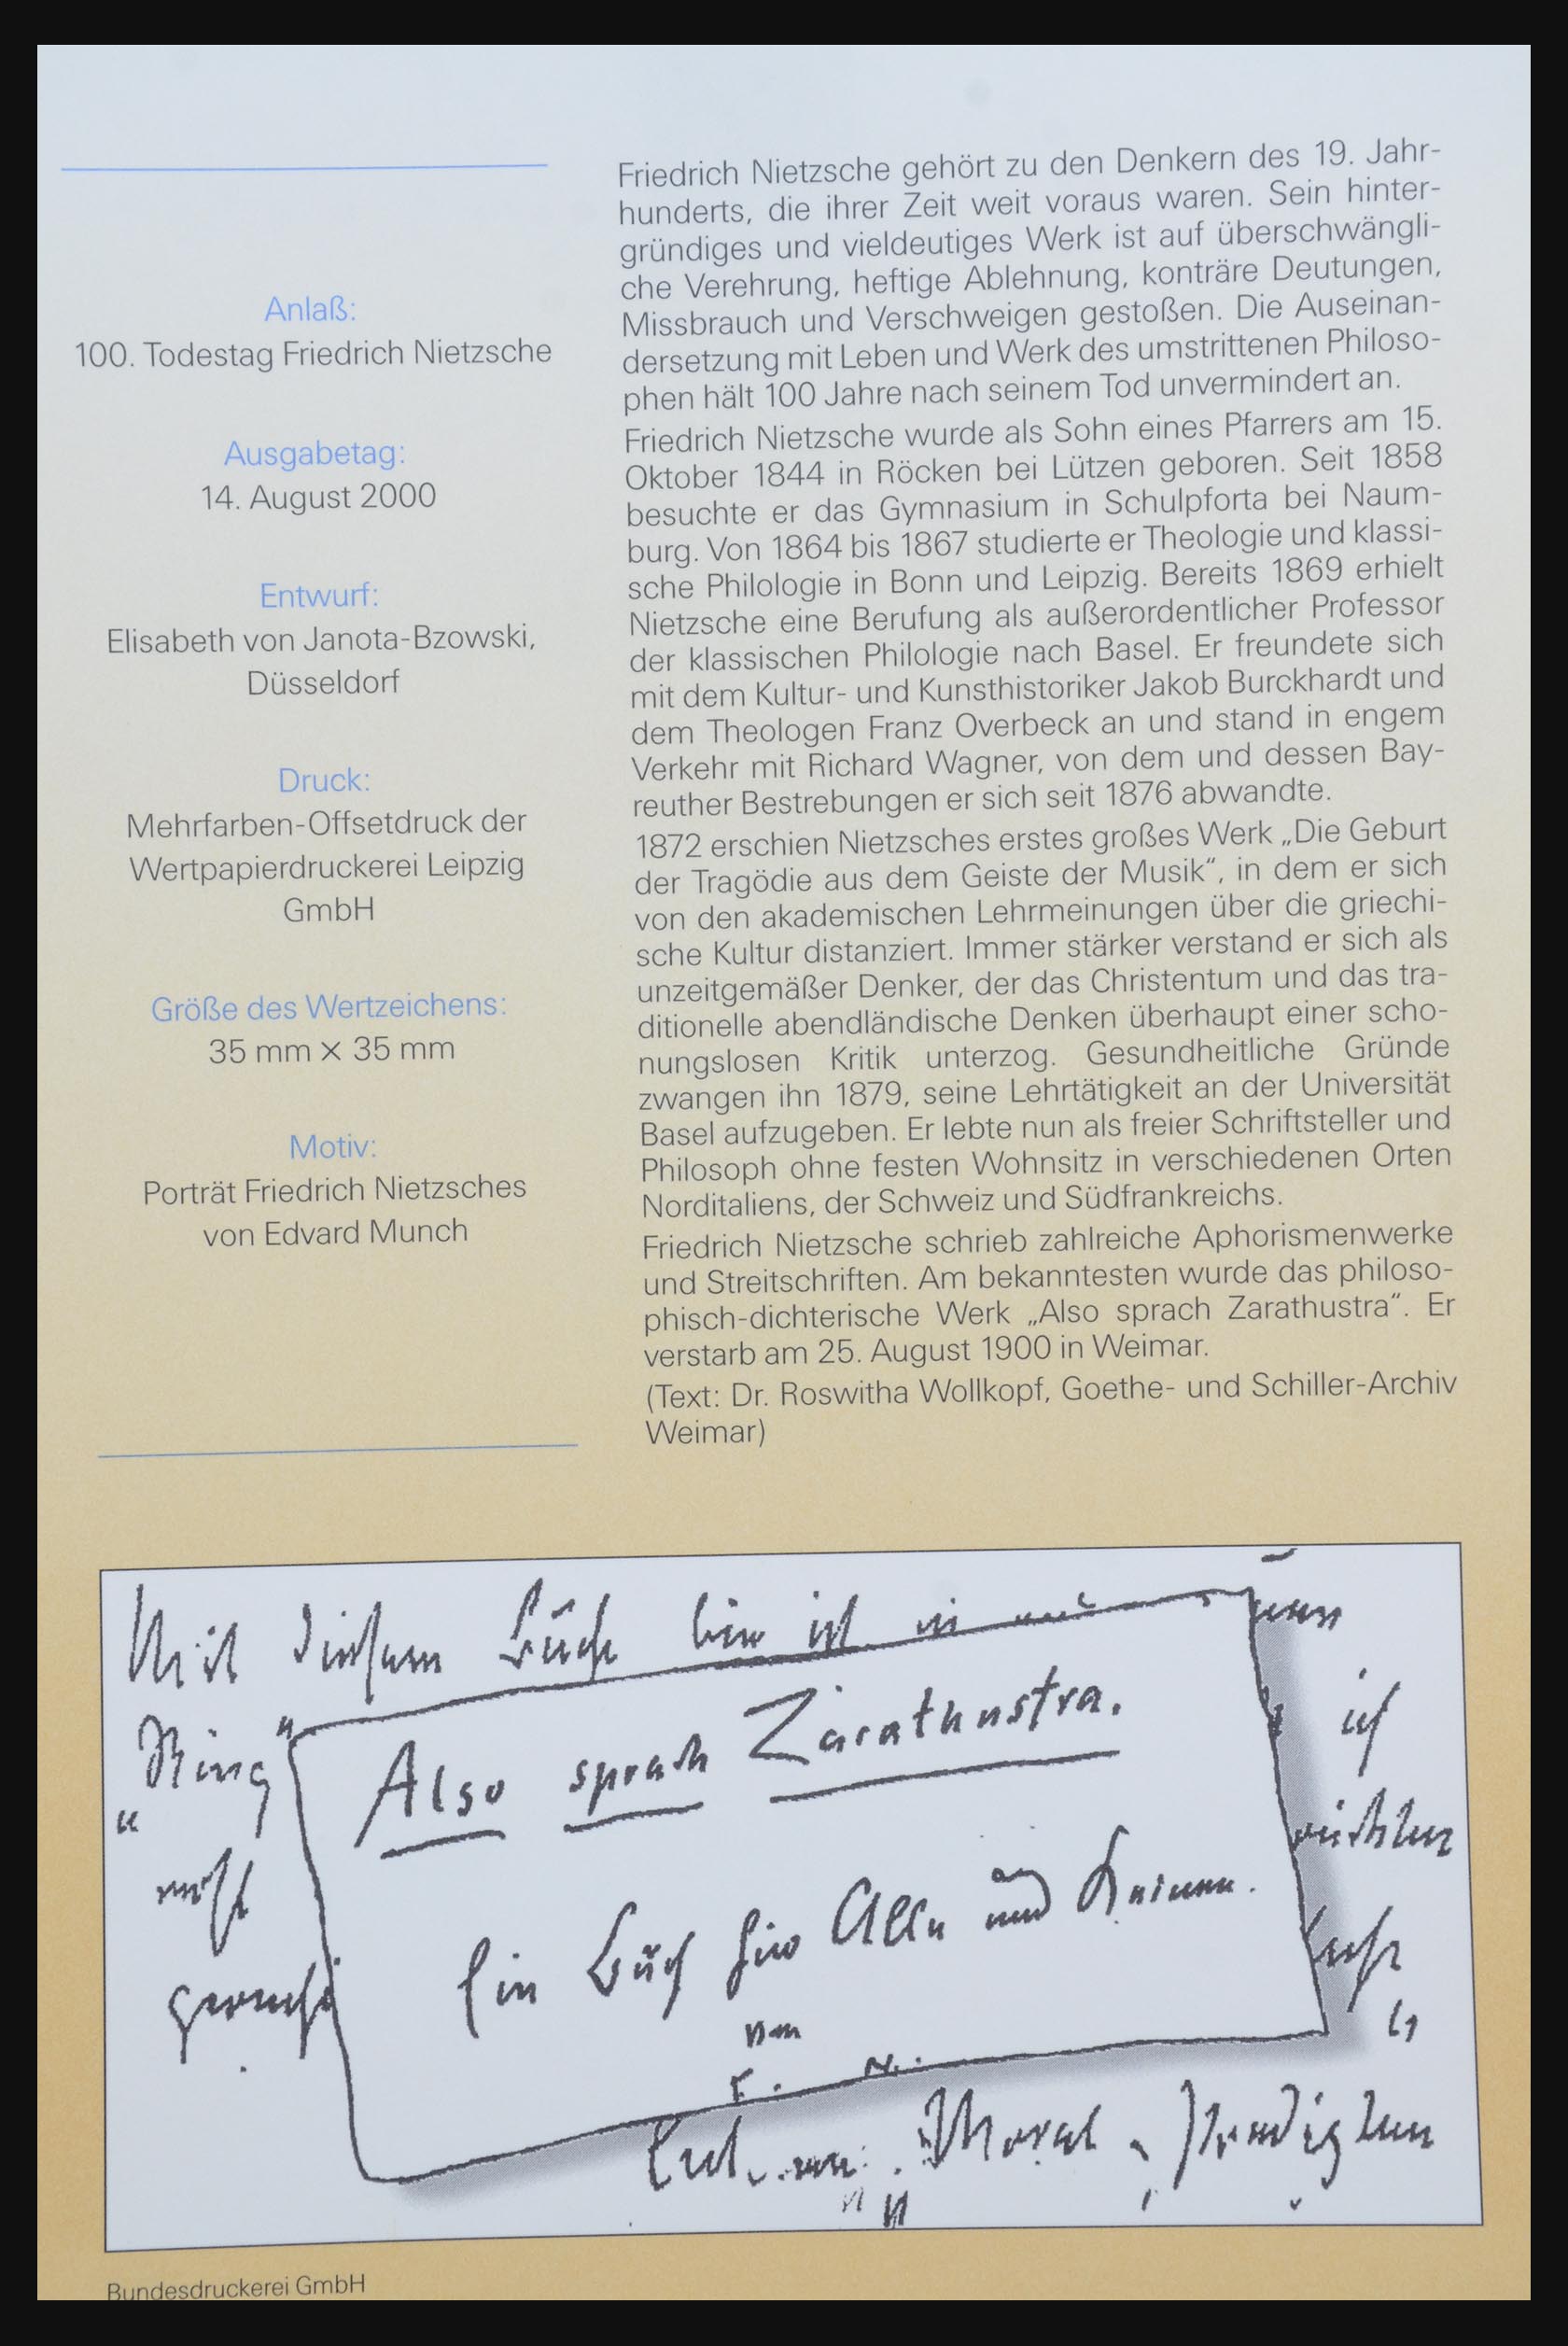 Anlaß:
100. Todestag Friedrich Nietzsche
Ausgabetag:
14. August 2000
Entwurf:
Elisabeth von Janota-Bzowski,
Düsseldorf
Druck:
Mehrfarben-Offsetdruck der
Wertpapierdruckerei Leipzig
GmbH
Größe des Wertzeichens:
35 mm × 35 mm
Motiv:
Porträt Friedrich Nietzsches
von Edvard Munch
Friedrich Nietzsche gehört zu den Denkern des 19. Jahr-
hunderts, die ihrer Zeit weit voraus waren. Sein hinter-
gründiges und vieldeutiges Werk ist auf überschwängli-
che Verehrung, heftige Ablehnung, konträre Deutungen,
Missbrauch und Verschweigen gestoßen. Die Auseinan-
dersetzung mit Leben und Werk des umstrittenen Philoso-
phen hält 100 Jahre nach seinem Tod unvermindert an.
Friedrich Nietzsche wurde als Sohn eines Pfarrers am 15.
Oktober 1844 in Röcken bei Lützen geboren. Seit 1858
besuchte er das Gymnasium in Schulpforta bei Naum-
burg. Von 1864 bis 1867 studierte er Theologie und klassi-
sche Philologie in Bonn und Leipzig. Bereits 1869 erhielt
Nietzsche eine Berufung als außerordentlicher Professor
der klassischen Philologie nach Basel. Er freundete sich
mit dem Kultur- und Kunsthistoriker Jakob Burckhardt und
dem Theologen Franz Overbeck an und stand in engem
Verkehr mit Richard Wagner, von dem und dessen Bay-
reuther Bestrebungen er sich seit 1876 abwandte.
1872 erschien Nietzsches erstes großes Werk „Die Geburt
der Tragödie aus dem Geiste der Musik“, in dem er sich
von den akademischen Lehrmeinungen über die griechi-
sche Kultur distanziert. Immer stärker verstand er sich als
unzeitgemäßer Denker, der das Christentum und das tra-
ditionelle abendländische Denken überhaupt einer scho-
nungslosen Kritik unterzog. Gesundheitliche Gründe
zwangen ihn 1879, seine Lehrtätigkeit an der Universität
Basel aufzugeben. Er lebte nun als freier Schriftsteller und
Philosoph ohne festen Wohnsitz in verschiedenen Orten
Norditaliens, der Schweiz und Südfrankreichs.
Friedrich Nietzsche schrieb zahlreiche Aphorismenwerke
und Streitschriften. Am bekanntesten wurde das philoso-
phisch-dichterische Werk „Also sprach Zarathustra“. Er
verstarb am 25. August 1900 in Weimar.
(Text: Dr. Roswitha Wollkopf, Goethe- und Schiller-Archiv
Weimar)
Mit diesem Buche bin ich in
„Ring“
ich
Also sprach Zarathustra.
Ein Buch für Alle und Keinen.
Von
F. N.
Moral-Predigten
Bundesdruckerei GmbH